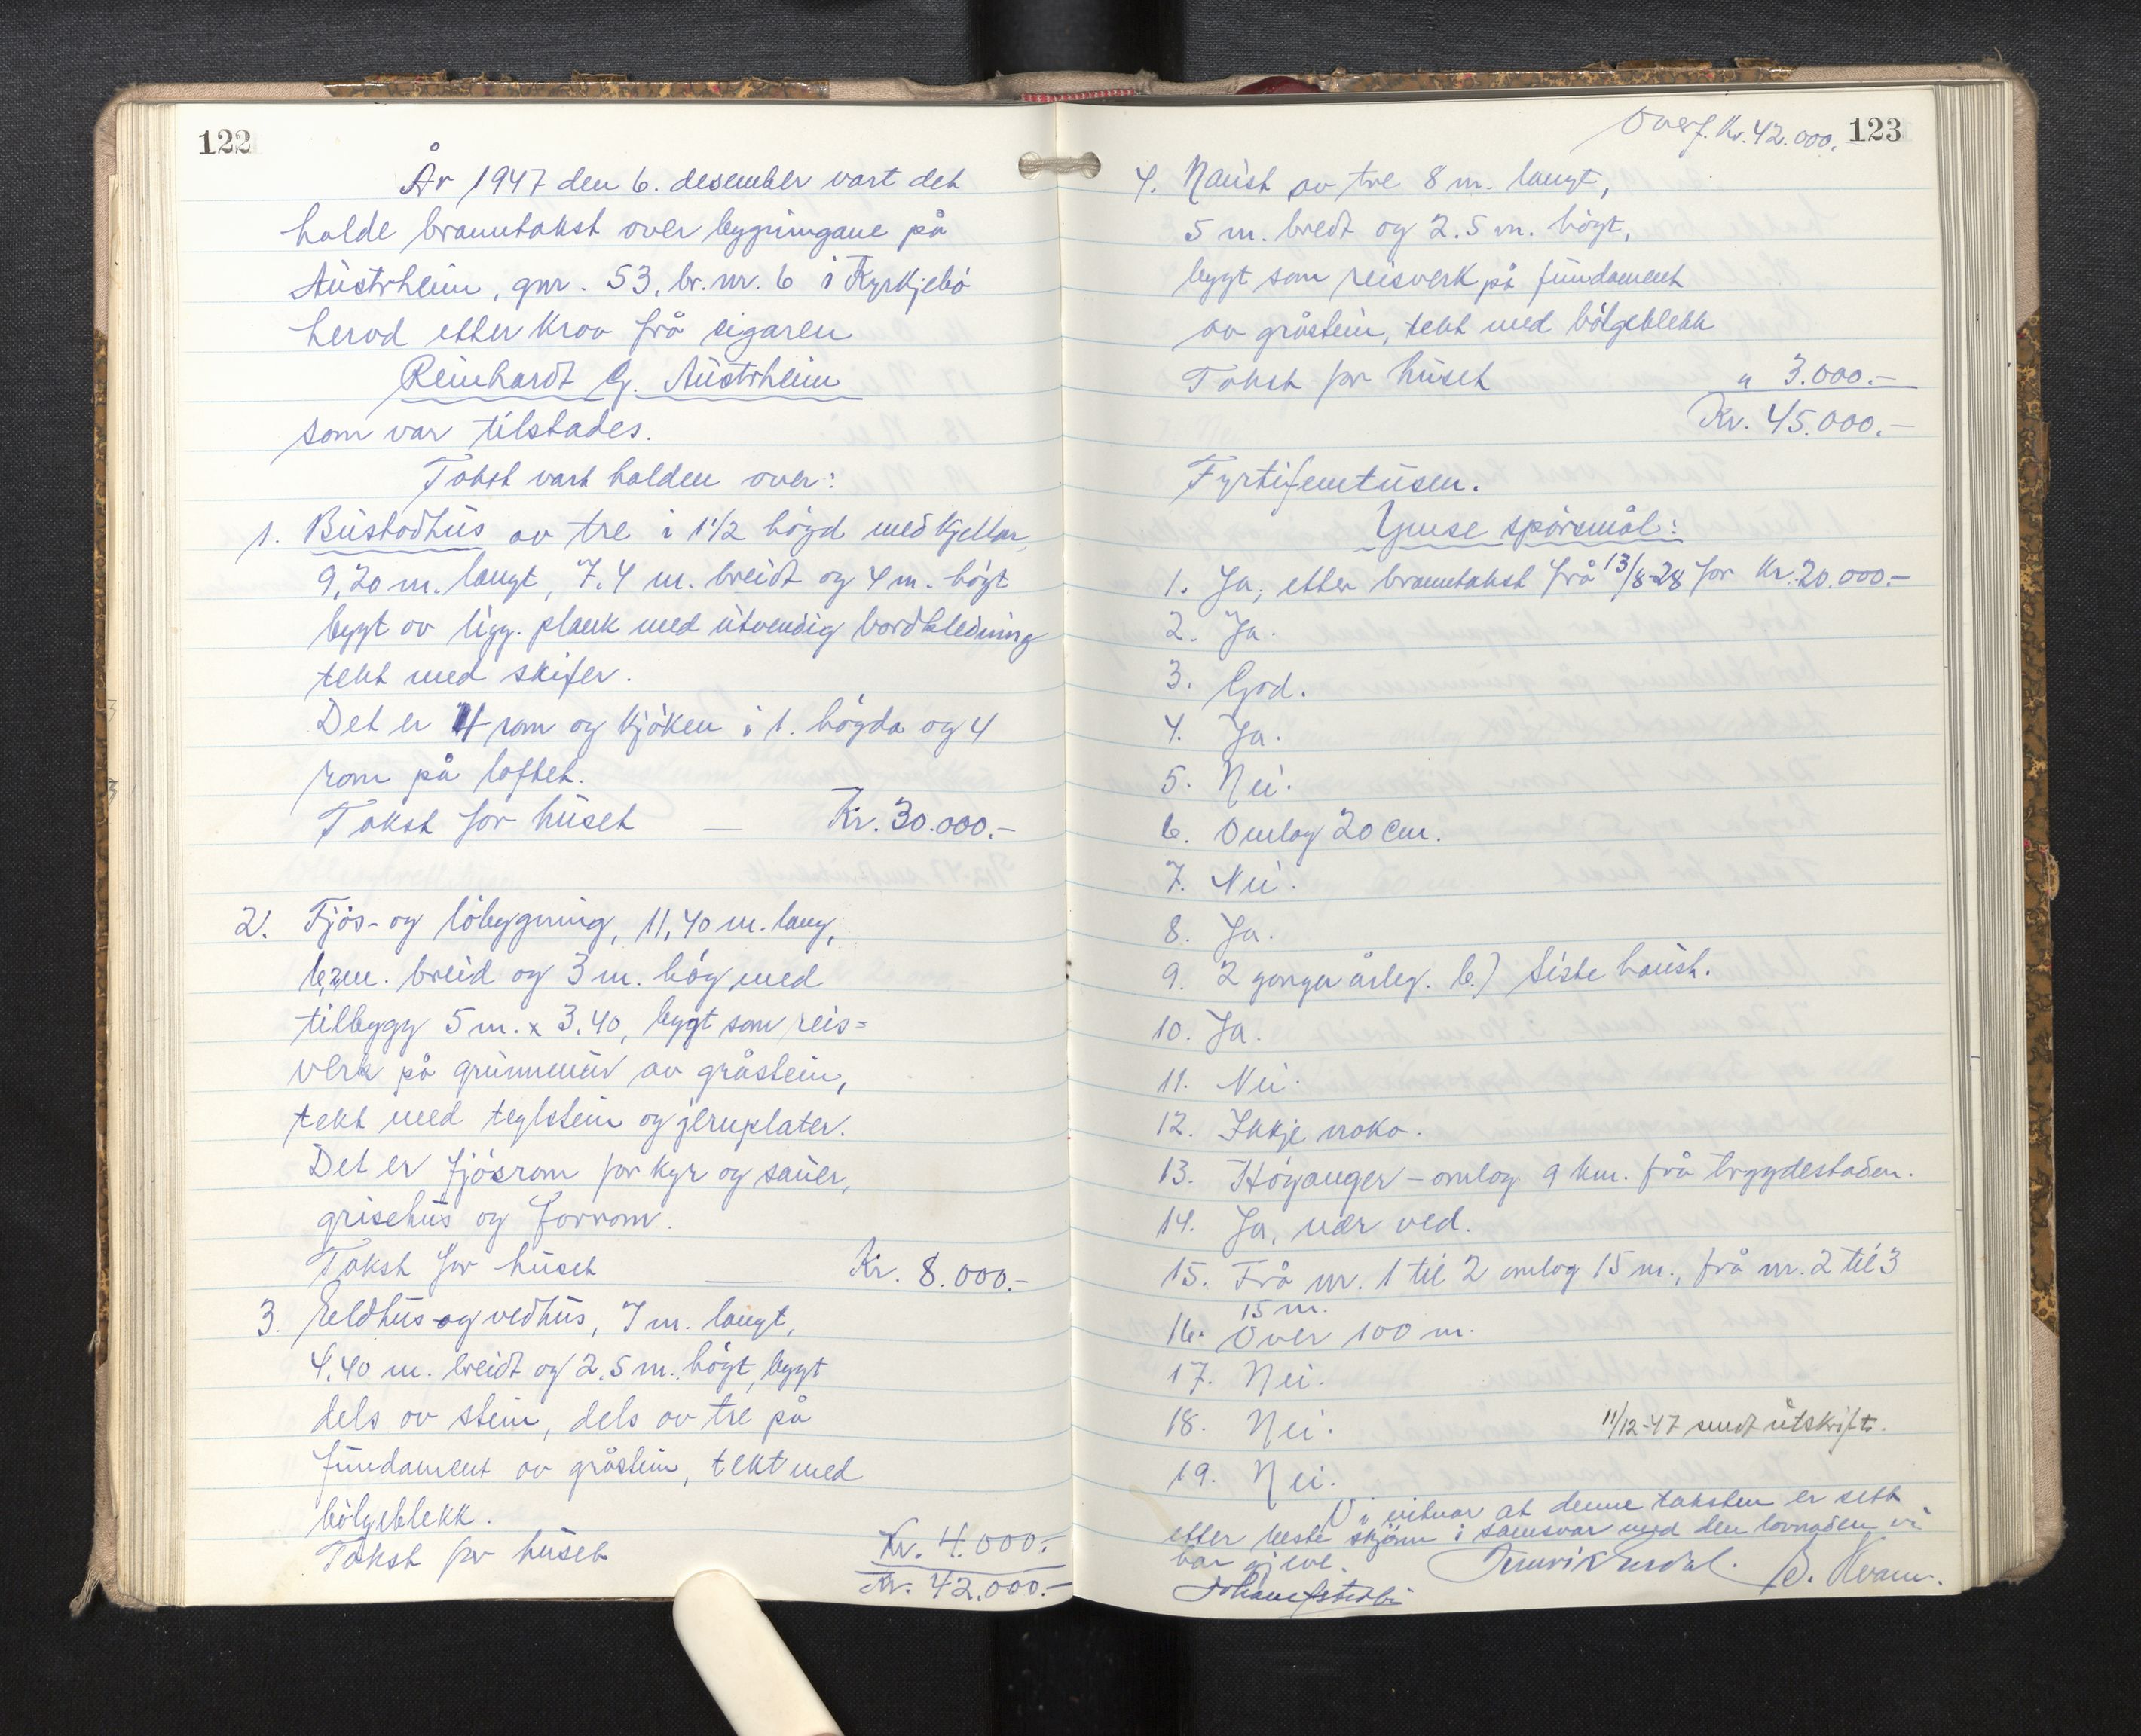 122
År 1947 den 6. desember vart det
halde branntakst over bygningane på
Austrheim, gnr. 53, br. nr. 6 i Kyrkjebø
herad etter krav frå eigaren
Reinhardt G. Austrheim
som var tilstades.
Takst vart halden over:
1. Bustadhus av tre i 1 1/2 høgd med kjellar,
9,20 m. langt, 7.4 m. breidt og 4 m. høgt
bygt av ligg. plank med utvendig bordkledning
tekt med skifer.
Det er 4 rom og kjøken i 1. høgda og 4
rom på loftet.
Takst for huset — Kr. 30.000.-
2. Fjøs- og løbygning, 11,40 m. lang,
breid og 3 m. høg med
tilbygg 5 m. x 3.40, bygt som reis=
verk på grunnmur av gråstein,
tekt med teglstein og jernplater.
Det er fjøsrom for kyr og sauer,
grisehus og forrom.
Takst for huset — Kr. 8.000.-
3. Eeldhus og vedhus, 7 m. langt,
4,40 m. breidt og 2,5 m. høgt, bygt
dels av stein, dels av tre på
fundament av gråstein, tekt med
bølgeblekk.
Takst for huset Kr. 4.000.-
Kr. 42.000.-
Overf. Kr. 42.000. 123
4. Naust av tre 8 m. langt,
5 m. bredt og 2.5 m. høgt,
bygt som reisverk på fundament
av gråstein, tekt med bølgeblekk
Takst for huset " 3.000.-
Kr. 45.000.-
Fyrtifemtusen.
Ymse spørsmål:
1. Ja, etter branntakst frå 13/8-28 for Kr. 20.000.-
2. Ja.
3. God.
4. Ja.
5. Nei.
6. Omlag 20 cm.
7. Nei.
8. Ja.
9. 2 gonger årleg. b.) Siste haust.
10. Ja.
11. Nei.
12. Ikkje noko.
13. Høyanger – omlag 9 km. frå brygdestaden.
14. Ja, nær ved.
15. Frå nr. 1 til 2 omlag 15 m., frå nr. 2 til 3
15 m.
16. Over 100 m.
17. Nei.
18. Nei. 11/12-47 sendt utskrift.
19. Nei.
Vi vitnar at denne taksten er sett
etter beste skjønn i samsvar med den lovnaden vi
har gjeve.
Kvam.